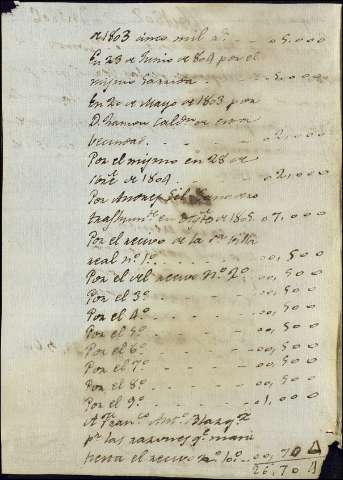 de 1803 cinco mil rs. - - 05,000
En 23 de Junio de 1804 por el
mismo Garrida - - 2,000
En 20 de Mayo de 1803 por
D. Ramon Calderon esta
becindad. - - 02,000
Por el mismo en 28 de
de 1804 - - 02,000
Por Andres Gil
en de 1805 07,000
Por el recivo de la Villa
real nº 1º - - 00,500
Por el del recivo Nº 2º - 00,500
Por el 3º - - 00,500
Por el 4º - - 00,500
Por el 5º - - 00,500
Por el 6º - - 00,500
Por el 7º - - 00,500
Por el 8º - - 00,500
Por el 9º - - 01,000
A Franco Anto Blazqz
pr las razones qe mani
fiesta el recivo nº 10º - 00,70
26,70